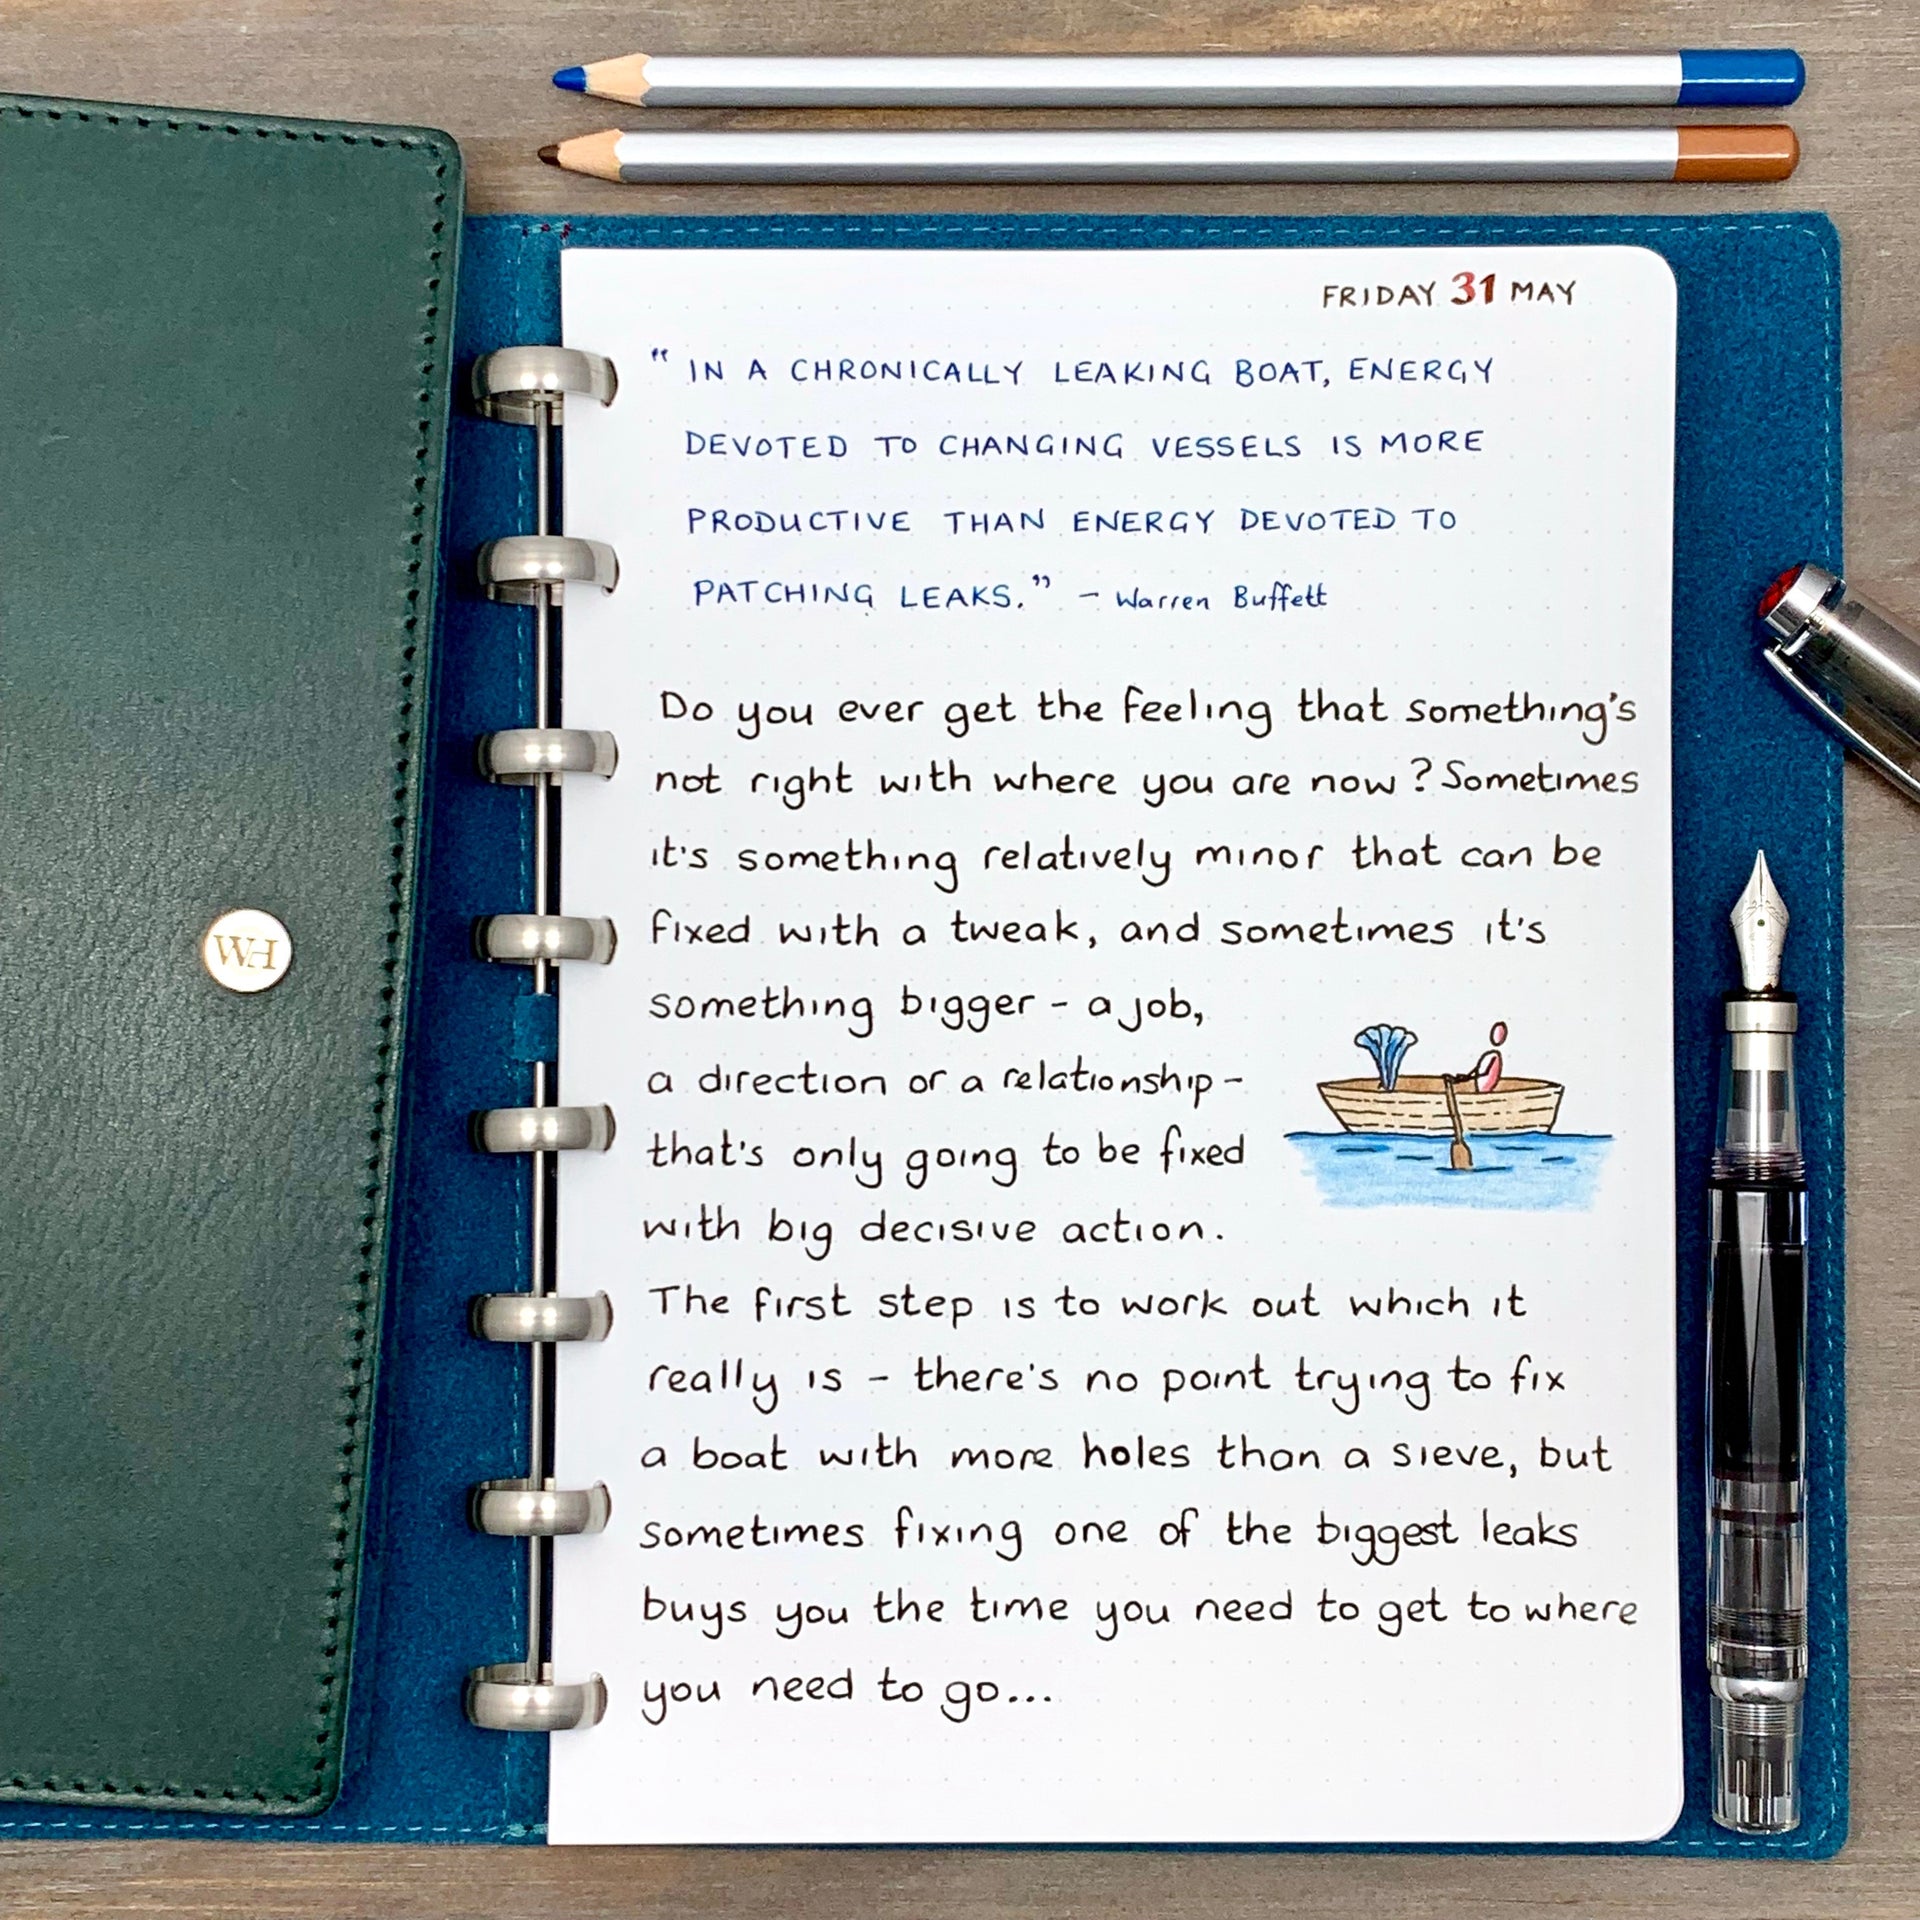 WH
FRIDAY 31 MAY
"IN A CHRONICALLY LEAKING BOAT, ENERGY
DEVOTED TO CHANGING VESSELS IS MORE
PRODUCTIVE THAN ENERGY DEVOTED TO
PATCHING LEAKS." - Warren Buffett
Do you ever get the feeling that something's
not right with where you are now? Sometimes
it's something relatively minor that can be
fixed with a tweak, and sometimes it's
something bigger - a job,
a direction or a relationship -
that's only going to be fixed
with big decisive action.
The first step is to work out which it
really is - there's no point trying to fix
a boat with more holes than a sieve, but
sometimes fixing one of the biggest leaks
buys you the time you need to get to where
you need to go...